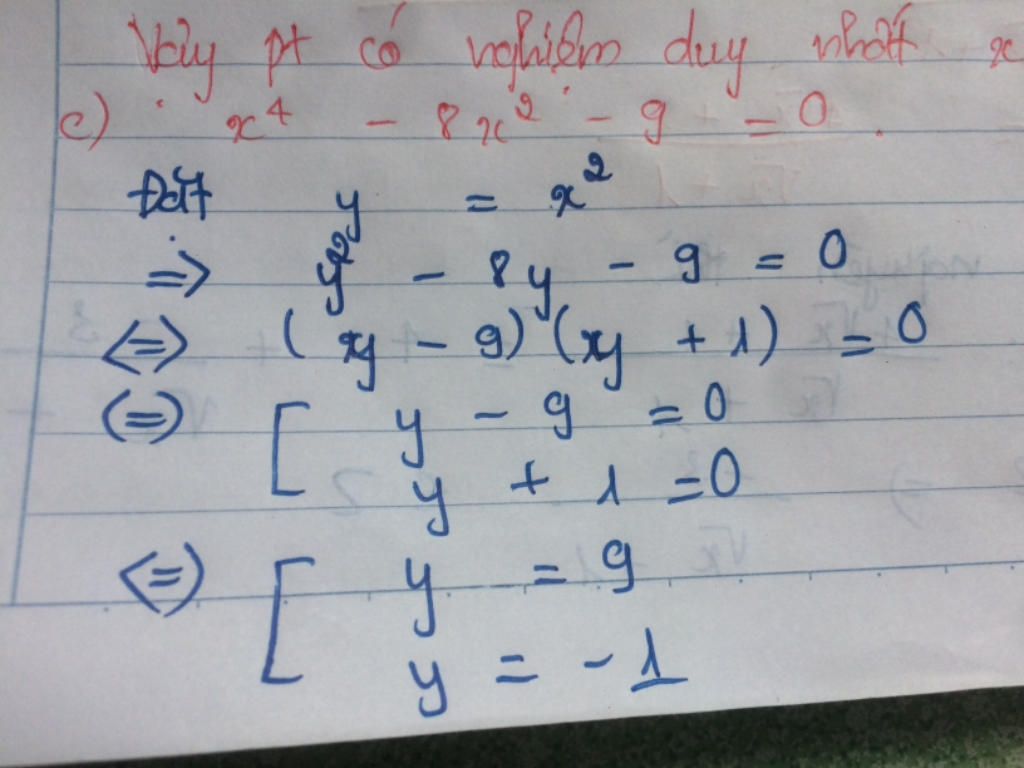 Vậy pt có nghiệm duy nhất x
c) x⁴ - 8x² - 9 = 0.
Đặt y = x²
=> y² - 8y - 9 = 0
<=> (y - 9)(y + 1) = 0
(=) [ y - 9 = 0
y + 1 = 0
<=> [ y = 9
y = -1